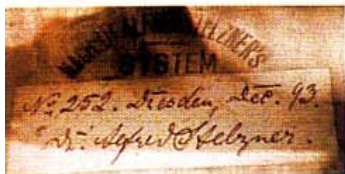 SYSTEM
No 252. Dresden, Dec. 93.
Dr. Alfred Stelzner.